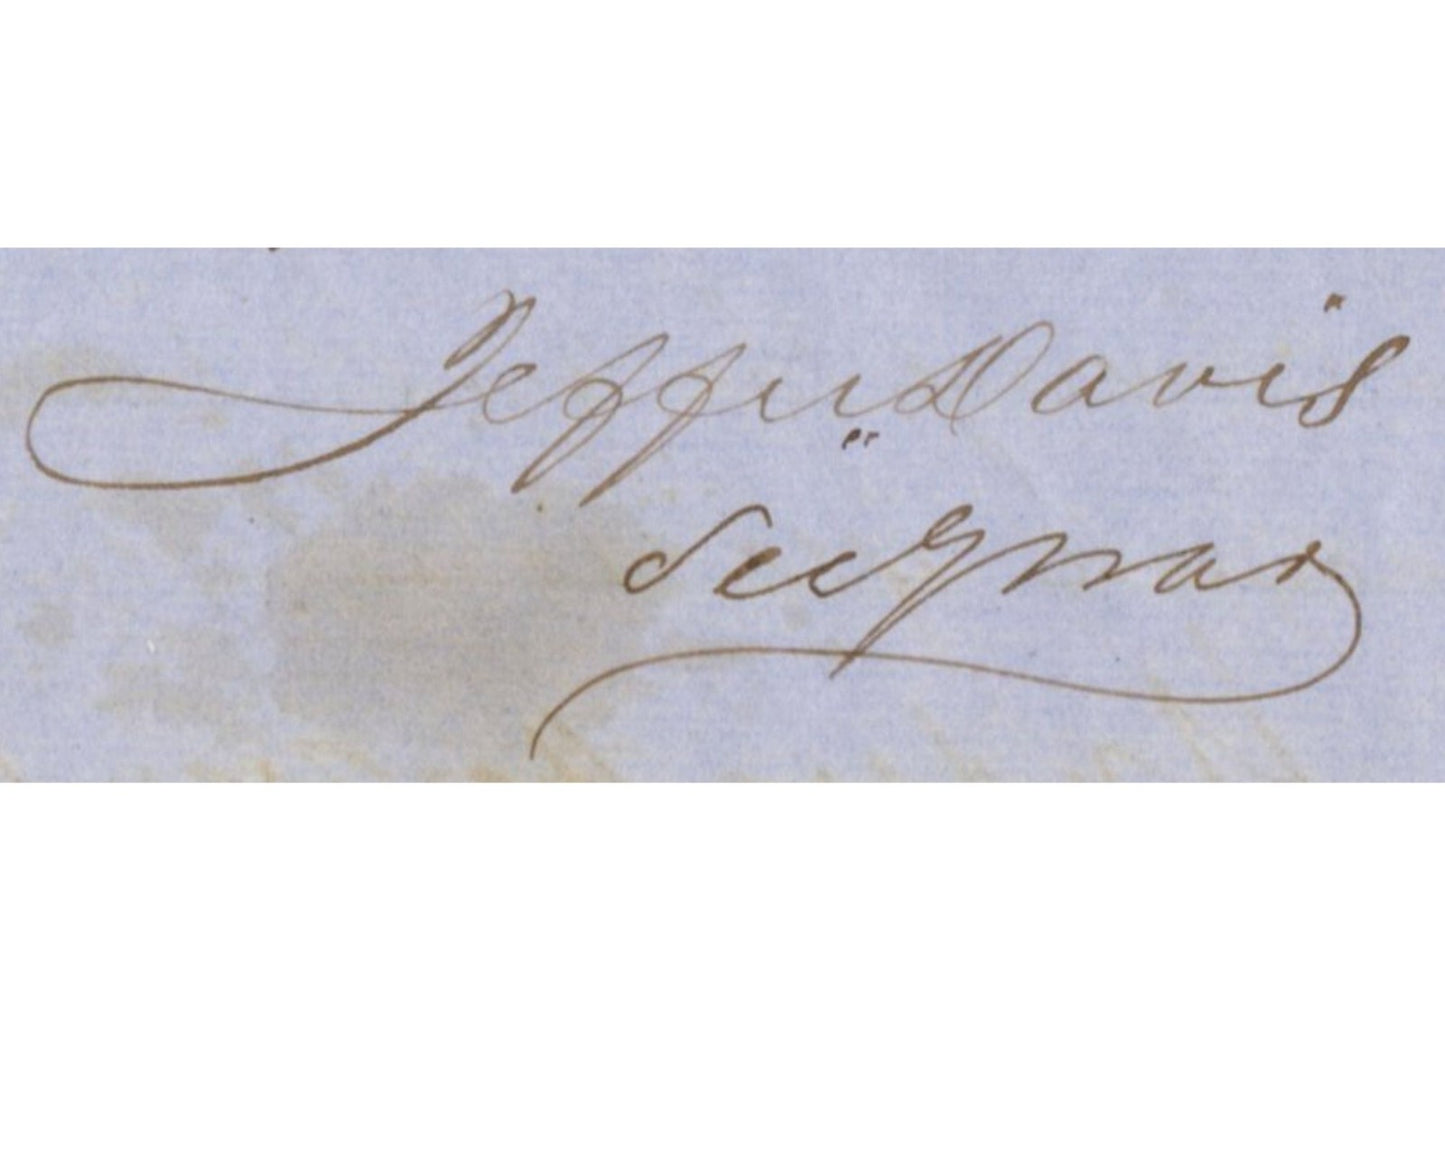 Jeffn Davis
Secy War